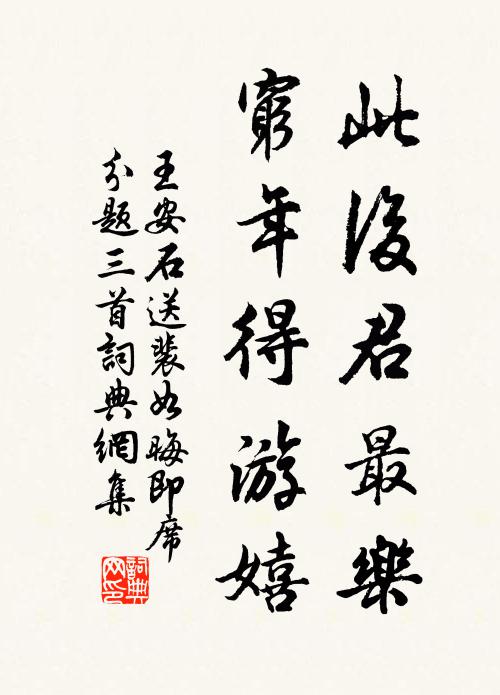 此後君最樂
窮年得游嬉
王安石送裴如晦即席
分題三首詞典網集
詞典網印